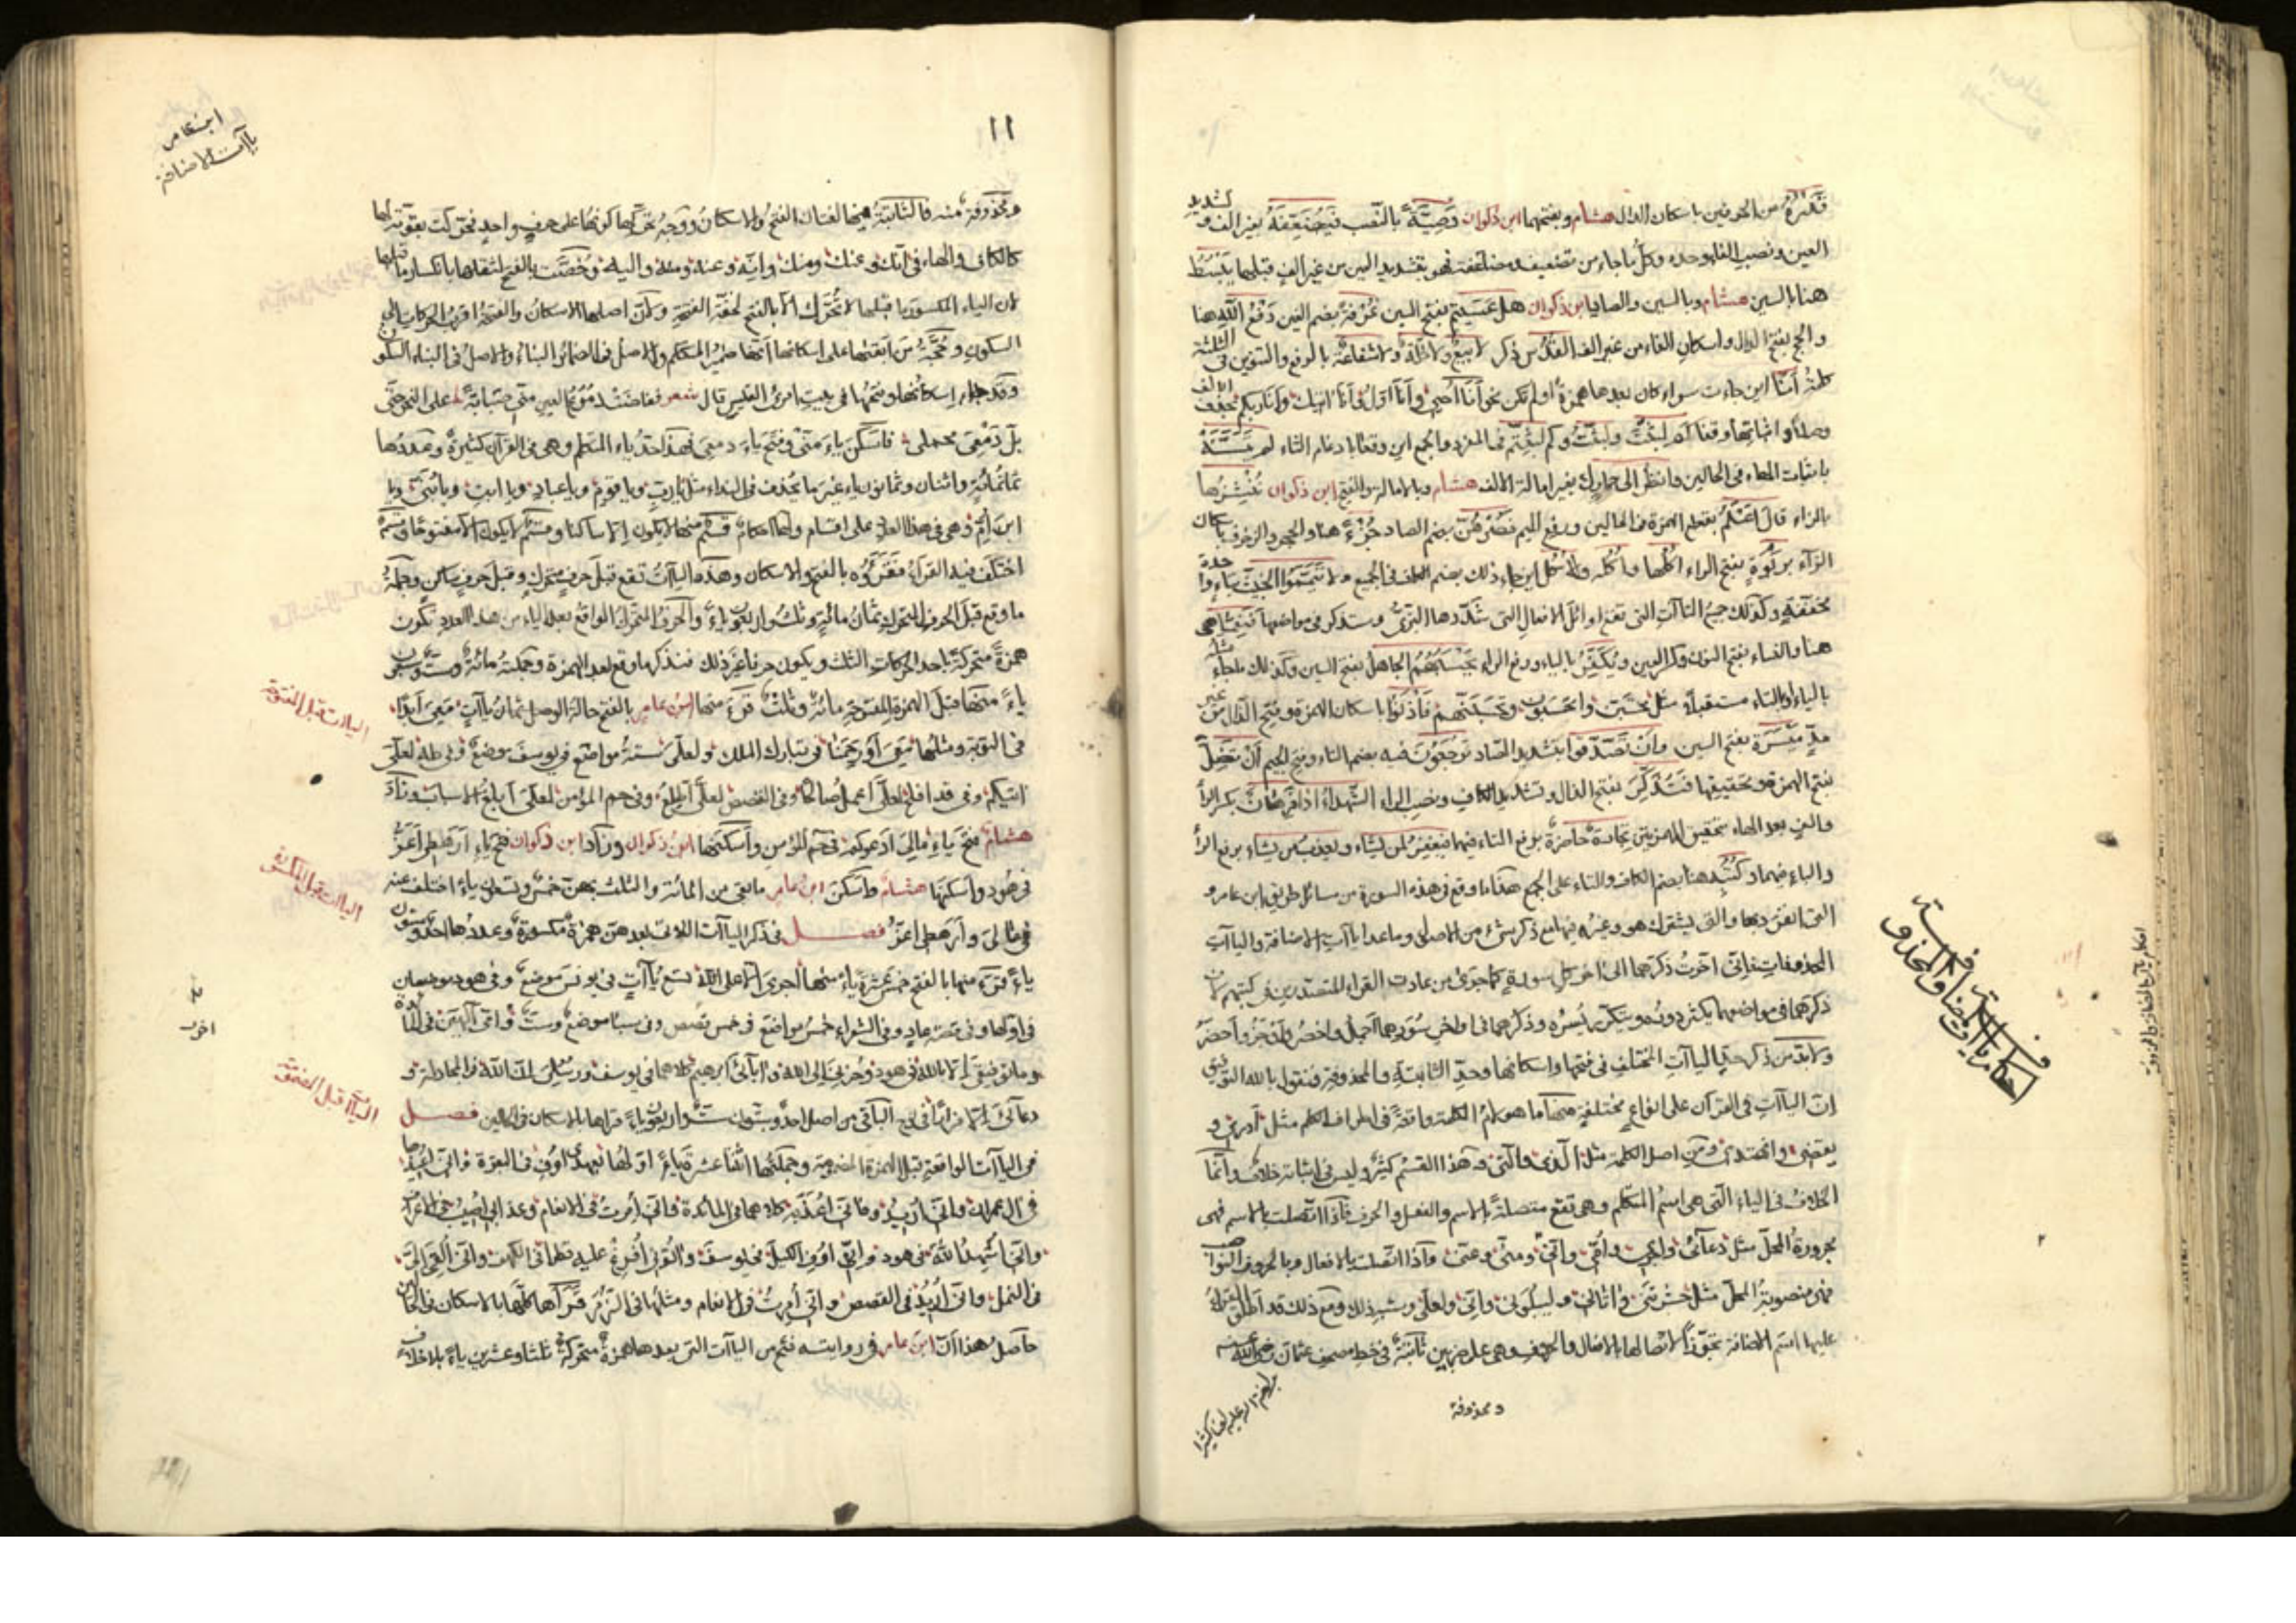 قدره من الحرفين باسكان الدال هشام وبفتحهما ابن ذكوان وصيةً بالنصب فيضعفه بغير الف وتشديد
العين ونصب الفاء وحده وكل ما جاء من تضعيف ومضاعفة نحو بتشديد العين من غير الف قبلهما يبسط
هنا بالسين هشام وبالسين والصاد ابن ذكوان هل عسيتم بفتح السين غرفة بضم الغين دفع الله هنا
والحج بفتح الدال واسكان الفاء من غير الف القدس ذكر لا بيع ولا خلة ولا شفاعة بالرفع والتنوين في الثلثة
كلمة أنا اين جاءت سواء كان بعدها همزة او لم تكن نحو أنا احيي وأنا اول وأنا اتيك وأنا ربكم بحذف الالف
وصلاً واثباتها وقفا لبثت ولبثت وكم لبثتم في المفرد والجمع اين وقعا بادغام الثاء لم يتسنه
باثبات الهاء في الحالين وانظر الى حمارك بغير امالة الالف هشام وبالامالة والفتح ابن ذكوان ننشزها
بالزاء قال اعلم بقطع الهمزة في الحالين ورفع الميم فصرهن بضم الصاد جزءً هنا والحجر والزخرف باسكان
الزاء بربوة بفتح الراء اكلها واكله والاكل اين جاء ذلك بضم الكاف في الجميع ولا تيمموا الخبيث بتاء واحدة
مخففة وكذلك جميع التاآت التي تقع اوائل الافعال التي شددها البزي وستذكر في مواضعها فنعما هى
هنا والنساء بفتح النون وكسر العين ويكفر بالياء ورفع الراء يحسبهم الجاهل بفتح السين وكذلك ما جاء
بالياء او التاء مستقبلاً مثل تحسبن وايحسبون وتحسبنهم فأذنوا باسكان الهمزة وفتح الذال من غير
مدٍ ميسرة بفتح السين وان تصدقوا بتشديد الصاد ترجعون فيه بضم التاء وفتح الجيم أن تضل
بفتح الهمزة وتحقيقها فتذكر بفتح الذال وتشديد الكاف ونصب الراء الشهداء اذا فرهان بكسر الراء
والف بعد الهاء بتحقيق الهمزتين تجارة حاضرة برفع التاء فيهما فيغفر لمن يشاء ويعذب من يشاء برفع الراء
والباء فيهما وكتبه هنا بضم الكاف والتاء على الجمع هذا ما وقع في هذه السورة من مسائل طريق ابن عامر و
التي انفرد بها والتي يشترك هو وغيره فيها مع ذكر شيء من الاصول وما عدا ياآت الاضافة والياآت
المحذوفات فإني اخرت ذكرهما الى اخر كل سورة كما جرى من عادت القراء المتصدرين في كتبهم لان
ذكرهما في مواضعهما يكثر دونه ويتكرر يسره وذكرهما في اواخر سورهما اجمل واخصر
ولا بد من ذكر الياآت المختلف في فتحها واسكانها وحد الثابتة والمحذوفة فنقول بالله التوفيق
ان الياآت في القرآن على انواع مختلفة منها ما هو لام الكلمة واقعة في اطراف الكلم مثل أدري و
يقضي واهتدي ومن اصل الكلمة مثل الذي والتي وهذا القسم كثير وليس في اثباته خلاف وانما
الخلاف في الياء التي هي اسم المتكلم وهي تقع متصلة بالاسم والفعل والحرف فاذا اتصلت بالاسم فهى
مجرورة المحل مثل دعائي وابي وأمي واني ومني وعني واذا اتصلت بالافعال وبالحروف النواصب
فهى منصوبة المحل مثل حشرتني واتاني وليبلوني واني ولعلي وشبه ذلك ومع ذلك قد اطلق القراء
عليها اسم الاضافة تجوزاً لاتصالها بالافعال والحروف وهى على ضربين ثابتة في خط مصحف عثمان رضي الله عنه
ومحذوفة
١١
ابن عامر
ياآت الاضافة
ومحذوفة منه فالثابتة فيها لغتان الفتح والاسكان ووجه تحركها كونها على حرف واحد فتحركت بقوته لها
كالكاف والهاء في انك وعنك ومنك وانه وعنه ومنه واليه وخصت بالفتح لثقلها بانكسار ما قبلها
لان الياء المكسور ما قبلها لا تحرك الا بالفتح لخفة الفتحة وكان اصلها الاسكان والفتحة اقرب الحركات الى
السكون وحجة من ابقى على اسكانها انها ضمير المتكلم والاصل في الضمائر البناء والاصل في البناء السكون
وقد جاء اسكانها وفتحها في بيت امرئ القيس قال شعر ففاضت دموع العين مني صبابةً على النحر حتى
بل دمعي محملي فاسكن ياء مني وفتح ياء دمعي فهذا حد ياء المتكلم وهى في القرآن كثيرة وعددها
ثمانمائة واثنان وثمانون ياء غير ما يحذف في النداء مثل يا رب ويا قوم ويا عباد ويا ابت ويا بنى ويا
ابن ام وهى في هذا العدد على اقسام ولها احكام قسم منها لا يكون الا ساكنا وقسم لا يكون الا مفتوحا وقسم
اختلف فيه القراء فقرؤه بالفتح والاسكان وهذه الياآت تقع قبل حرف متحرك وقبل حرف ساكن وجملة
ما وقع قبل الحرف المتحرك ثمان مائة وثلث واربعون ياءً والحرف المتحرك الواقع بعد الياء من هذا العدد تكون
همزة متحركة باحد الحركات الثلث ويكون حرفا غير ذلك فنذكر ما وقع بعد الهمزة وجملته مائة وست وستون
ياءً منها قبل الهمزة المفتوحة مائة وثلث قرء منها ابن عامر بالفتح حالة الوصل ثمان ياآت معى ابدًا
في التوبة ومثلها معى أو رحمنا في تبارك الملك ولعلى ستة مواضع في يوسف موضع وفي طه لعلى
اتيكم وفي قد افلح لعلى اعمل صالحًا وفي القصص لعلى اطلع وفي حم المؤمن لعلى ابلغ الاسباب وزاد
هشام فتح ياء مالى ادعوكم في حم المؤمن وأسكنها ابن ذكوان وزاد ابن ذكوان فتح ياء ارهطى اعز
في هود وأسكنها هشام واسكن ابن عامر ما بقى من المائة والثلث بهن خمس وتسعون ياء اختلف عنه
في مالى وأرهطى اعز فصل في ذكر الياآت اللاتي بعدهن همزة مكسورة وعددها احد وستون
ياءً قرء منها بالفتح خمس عشرة ياء منها اجرى الا على الله تسع ياآت في يونس موضع وفي هود موضعان
في اولها وفي قصة عاد وفي الشعراء خمس مواضع في خمس قصص وفي سبا موضع وامى الهين في المائدة
وما توفيقى الا بالله في هود وحزنى الى الله واباءى ابراهيم كلاهما في يوسف ورسلى ان الله في المجادلة و
دعاءى الا فرارًا في نوح الباقي من اصل احد وستون ست واربعون ياءً قراها بالاسكان في الحالين فصل
في الياآت الواقعة قبل الهمزة المضمومة وجملتها اثنا عشرة ياءً اولها بعهدى اوف في البقرة وانى اعيذها
في آل عمران وانى اريد وفانى اعذبه كلاهما في المائدة وانى امرت في الانعام وعذابى اصيب في الاعراف
وانى اشهد الله في هود وانى اوفى الكيل في يوسف واتونى افرغ عليه قطرا في الكهف وانى القى الى
في النمل وانى اريد في القصص وانى امرت في الانعام ومثلها في الزمر قرأها كلها بالاسكان في الحالين
حاصل هذا ان ابن عامر في روايته فتح من الياآت التى بعدها همزة متحركة ثلثا وعشرين ياءً بلا خلاف
الياآت قبل المفتوحة
الياآت قبل المكسورة
الياآت قبل المضمومة